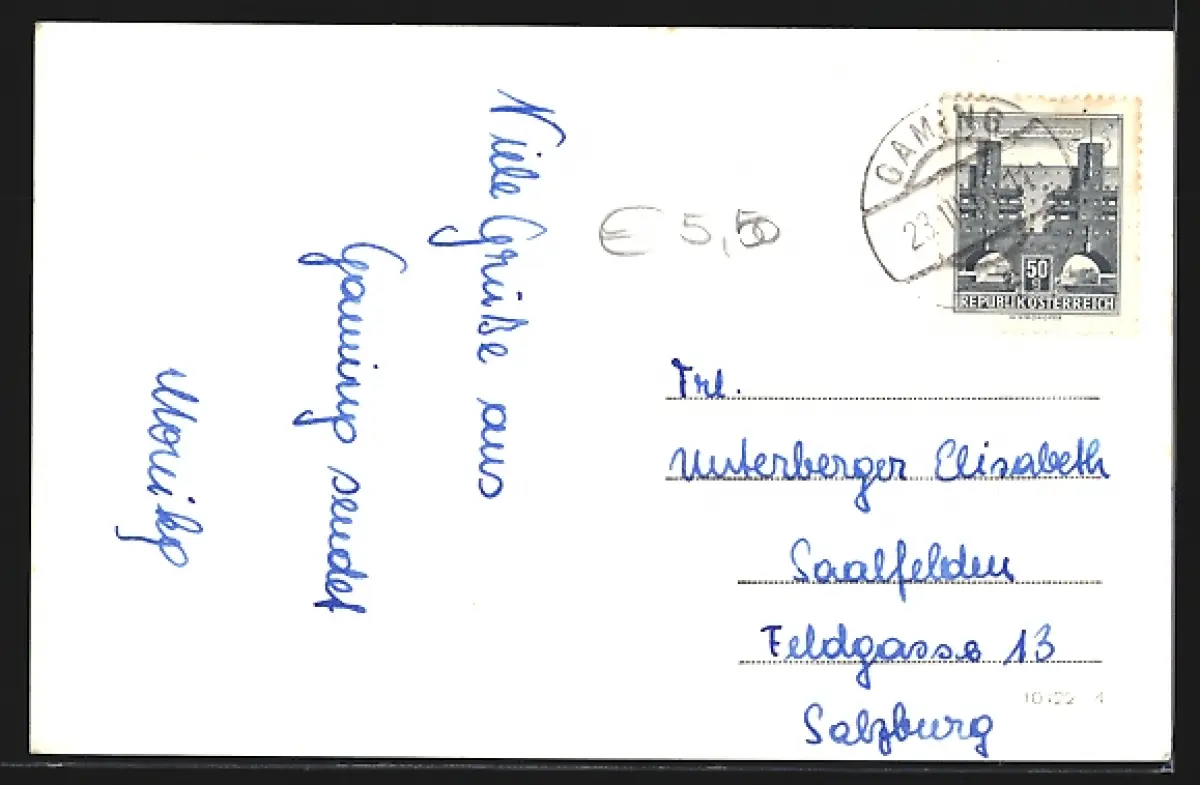 Viele Grüße aus
Gaming sendet
Monika
€ 5,50
GAMING
23.
50
g
REPUBLIK ÖSTERREICH
Frl.
Unterberger Elisabeth
Saalfelden
Feldgasse 13
Salzburg